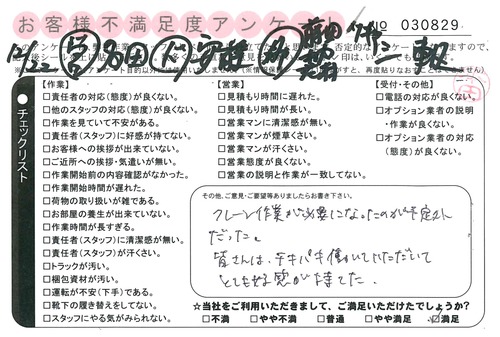 お客様不満足度アンケート
NO 030829
チェックリスト
【作業】
□責任者の対応(態度)が良くない。
□他のスタッフの対応(態度)が良くない。
□作業を見ていて不安がある。
□責任者(スタッフ)に好感が持てない。
□お客様への挨拶が出来ていない。
□ご近所への挨拶・気遣いが無い。
□作業開始前の内容確認がなかった。
□作業開始時間が遅れた。
□荷物の取り扱いが雑である。
□お部屋の養生が出来ていない。
□作業時間が長すぎる。
□責任者(スタッフ)に清潔感が無い。
□責任者(スタッフ)が汗くさい。
□トラックが汚い。
□梱包資材が汚い。
□運転が不安(下手)である。
□靴下の履き替えをしてない。
□スタッフにやる気がみられない。
【営業】
□見積もり時間に遅れた。
□見積もり時間が長い。
□営業マンに清潔感が無い。
□営業マンが煙草くさい。
□営業マンが汗くさい。
□営業態度が良くない。
□営業の説明と作業が一致してない。
【受付・その他】
□電話の対応が良くない。
□オプション業者の説明
・作業が良くない。
□オプション業者の対応
(態度)が良くない。
その他、ご意見・ご要望等ありましたらお書き下さい。
クレーン作業が必要になったのが予定外
だった。
皆さんは、テキパキ働いていただいて
とても好感が持てた。
☆当社をご利用いただきまして、ご満足いただけたでしょうか?
□不満 □やや不満 □普通 □やや満足 □満足